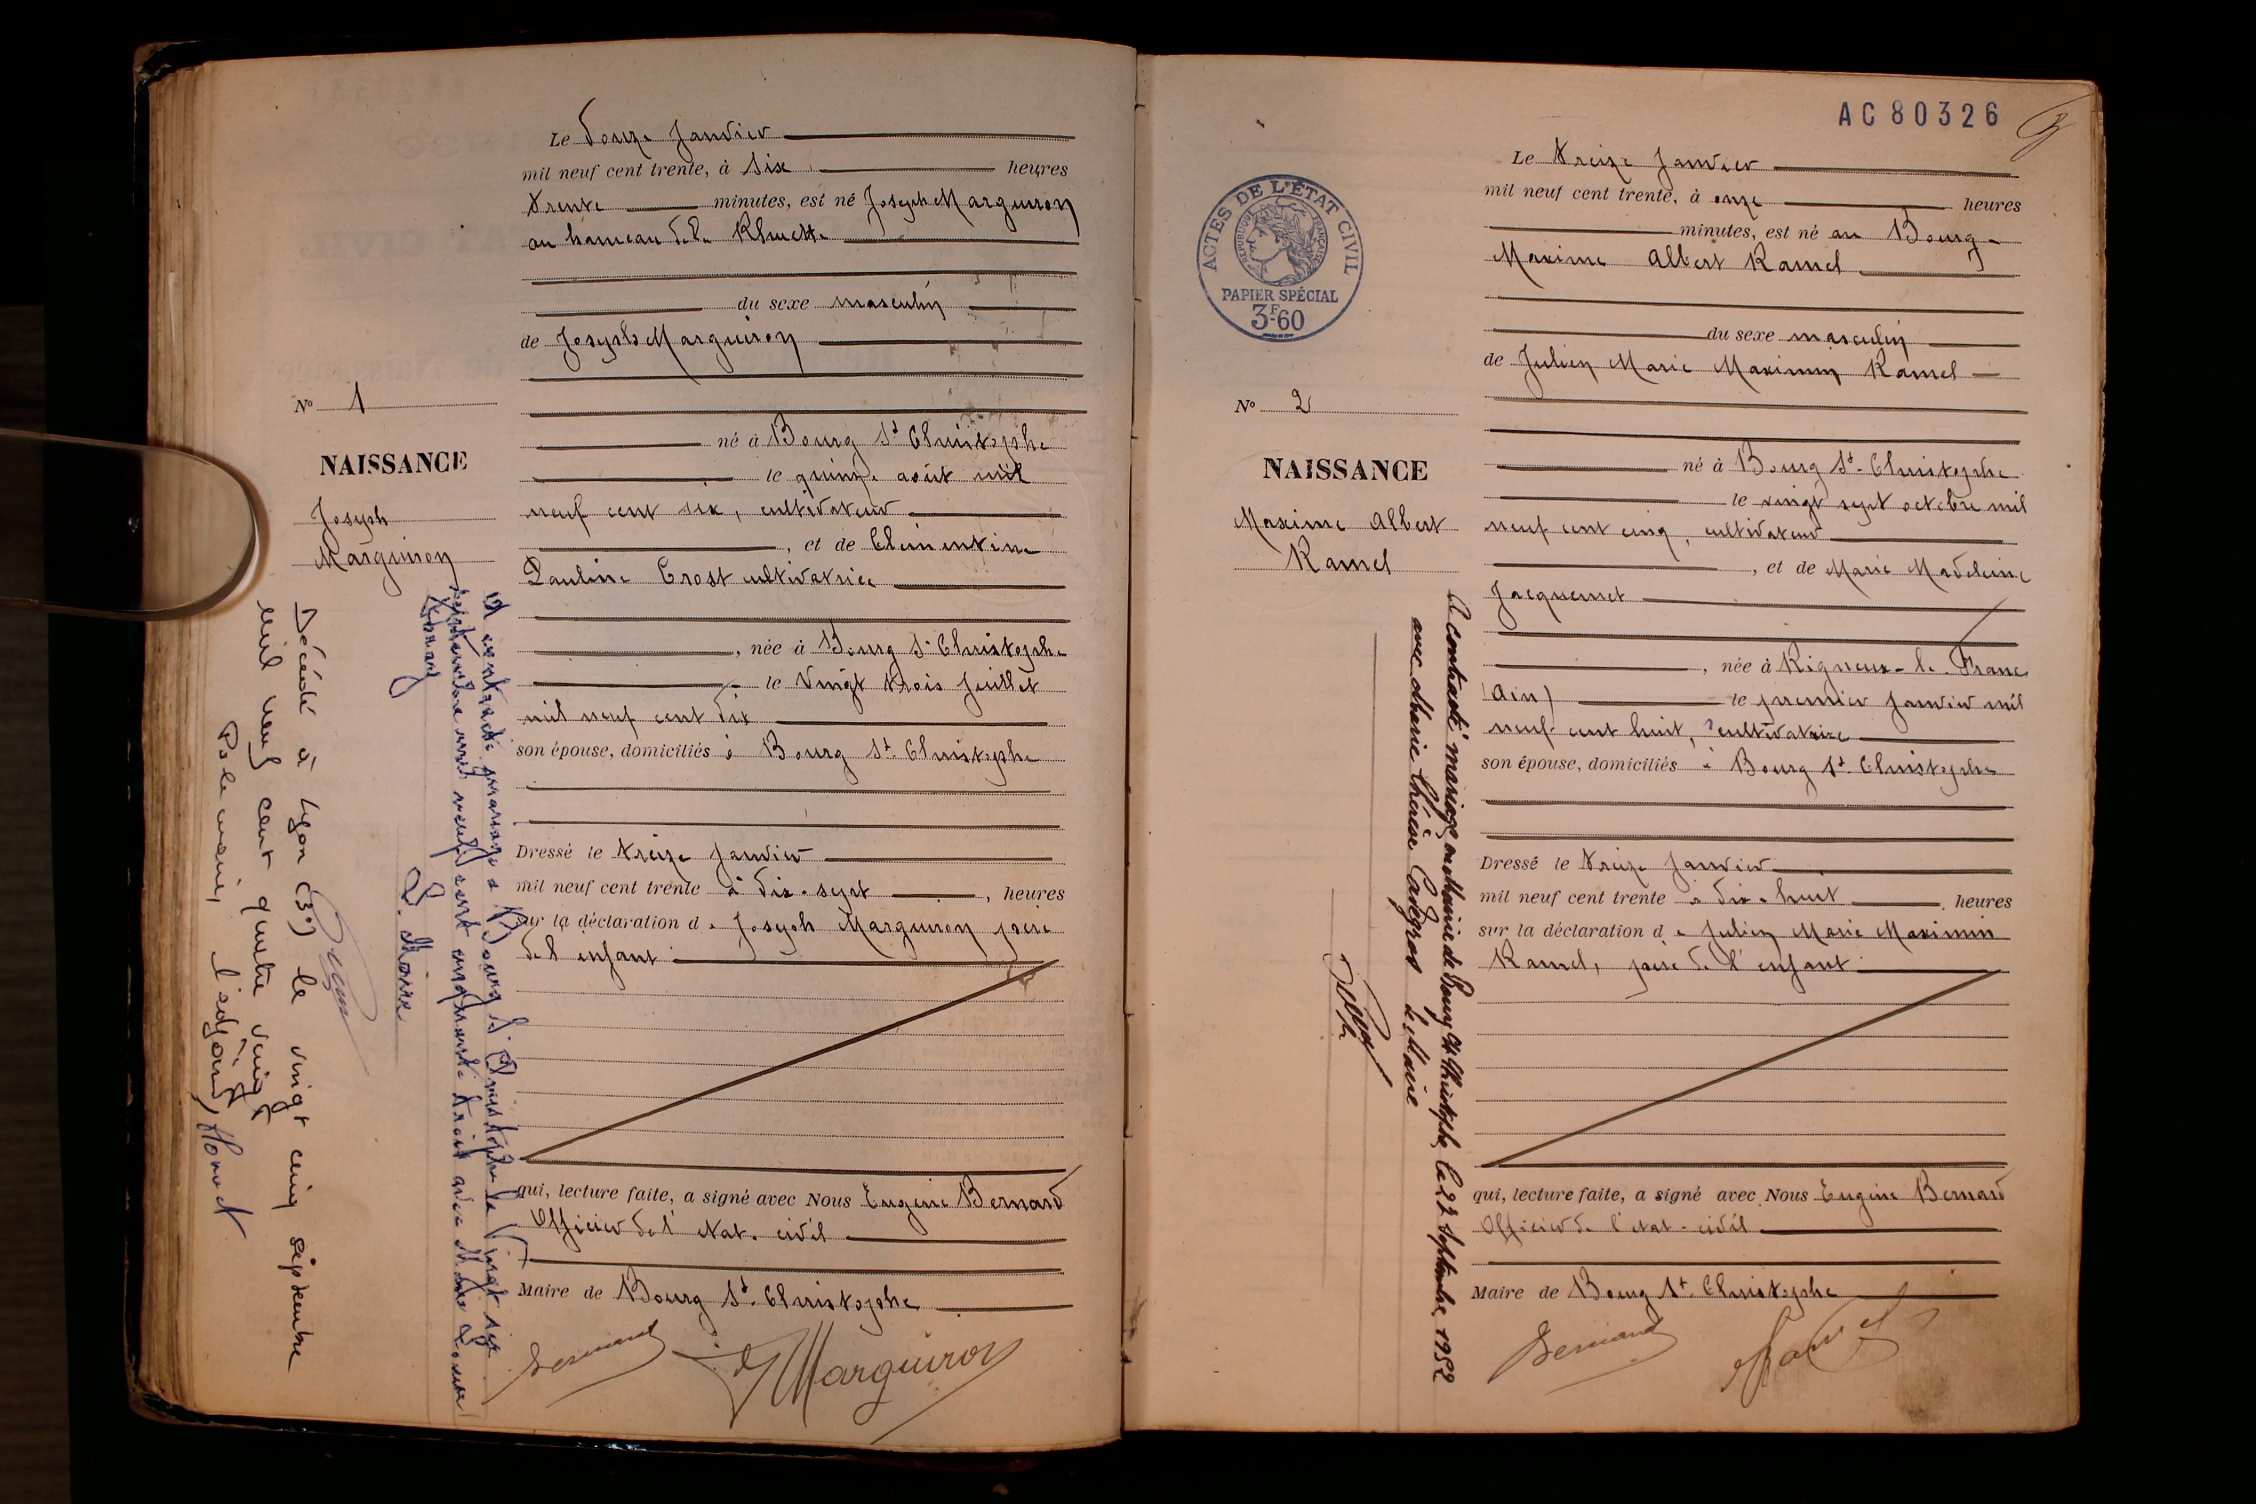 Le Douze Janvier
mil neuf cent trente, à six heures
trente minutes, est né Joseph Marguiron
au hameau de la
du sexe masculin
de Joseph Marguiron
né à Bourg St Christophe
le quinze août mil
neuf cent six, cultivateur
, et de Clémentine
Pauline Crost cultivatrice
, née à Bourg St Christophe
le vingt trois Juillet
mil neuf cent dix
son épouse, domiciliés à Bourg St. Christophe
Dressé le treize Janvier
mil neuf cent trente à dix-sept , heures
sur la déclaration de Joseph Marguiron père
de l'enfant
qui, lecture faite, a signé avec Nous Eugène Bernard
Officier de l'état-civil
Maire de Bourg St. Christophe
Bernard
J Marguiron
No 1
NAISSANCE
Joseph
Marguiron
A contracté mariage à Bourg St Christophe le vingt six
septembre mil neuf cent cinquante trois avec
Le Maire
Décédé à Lyon (3e) le vingt cinq septembre
mil neuf cent quatre vingt
P/ le maire, l'adjoint,
AC 80326
Le treize Janvier
mil neuf cent trente, à onze heures
minutes, est né au Bourg -
Maxime Albert Ramel
du sexe masculin
de Julien Marie Maximin Ramel
né à Bourg St-Christophe
le vingt sept octobre mil
neuf cent cinq, cultivateur
, et de Marie Madeleine
Jacquemet
, née à Rigneux-le-Franc
(Ain) le premier Janvier mil
neuf cent huit, cultivatrice
son épouse, domiciliés à Bourg St. Christophe
Dressé le treize Janvier
mil neuf cent trente à dix-huit , heures
sur la déclaration de Julien Marie Maximin
Ramel, père de l'enfant
qui, lecture faite, a signé avec Nous Eugène Bernard
Officier de l'état-civil
Maire de Bourg St. Christophe
Bernard
Ramel
ACTES DE L'ÉTAT CIVIL
RÉPUBLIQUE FRANÇAISE
PAPIER SPÉCIAL
3F60
No 2
NAISSANCE
Maxime Albert
Ramel
A contracté mariage en Mairie de Bourg St Christophe le 22 Septembre 1952
avec Marie Thérèse le Maire